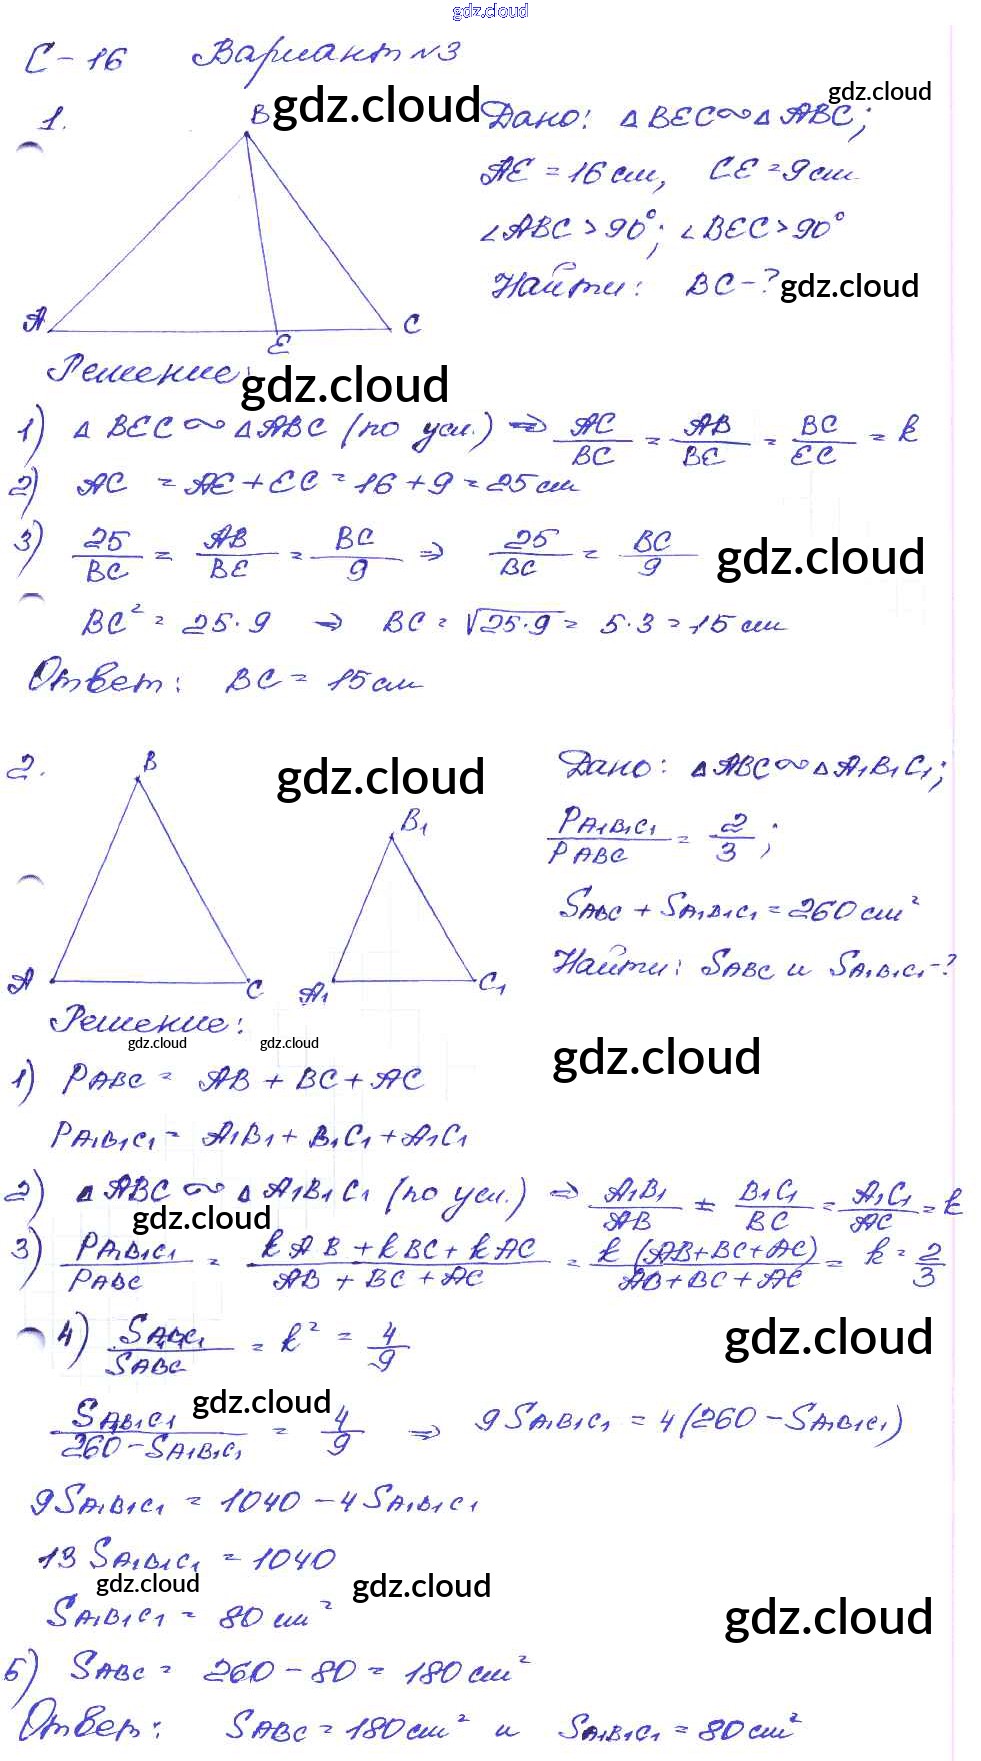 gdz.cloud
С-16 Вариант №3
1.
B
A
E
C
gdz.cloud
gdz.cloud
Дано: △BEC∾△ABC;
AE = 16 см, CE = 9 см
∠ABC > 90°; ∠BEC > 90°
Найти: BC - ? gdz.cloud
Решение: gdz.cloud
1) △BEC ∾ △ABC (по усл.) ⇒ AC/BC = AB/BE = BC/EC = k
2) AC = AE + EC = 16 + 9 = 25 см
3) 25/BC = AB/BE = BC/9 ⇒ 25/BC = BC/9 gdz.cloud
BC² = 25·9 ⇒ BC = √25·9 = 5·3 = 15 см
Ответ: BC = 15 см
2.
B
A
C
B₁
A₁
C₁
gdz.cloud
Дано: △ABC∾△A₁B₁C₁;
PA₁B₁C₁/PABC = 2/3;
SABC + SA₁B₁C₁ = 260 см²
Найти: SABC и SA₁B₁C₁ - ?
Решение:
gdz.cloud gdz.cloud gdz.cloud
1) PABC = AB + BC + AC
PA₁B₁C₁ = A₁B₁ + B₁C₁ + A₁C₁
2) △ABC ∾ △A₁B₁C₁ (по усл.) ⇒ A₁B₁/AB = B₁C₁/BC = A₁C₁/AC = k
gdz.cloud
3) PA₁B₁C₁/PABC = kAB + kBC + kAC/AB + BC + AC = k(AB+BC+AC)/AB+BC+AC = k = 2/3
4) SA₁B₁C₁/SABC = k² = 4/9 gdz.cloud
gdz.cloud
SA₁B₁C₁/260 - SA₁B₁C₁ = 4/9 ⇒ 9SA₁B₁C₁ = 4(260 - SA₁B₁C₁)
9SA₁B₁C₁ = 1040 - 4SA₁B₁C₁
13 SA₁B₁C₁ = 1040
gdz.cloud gdz.cloud
SA₁B₁C₁ = 80 см² gdz.cloud
5) SABC = 260 - 80 = 180 см²
Ответ: SABC = 180 см² и SA₁B₁C₁ = 80 см²